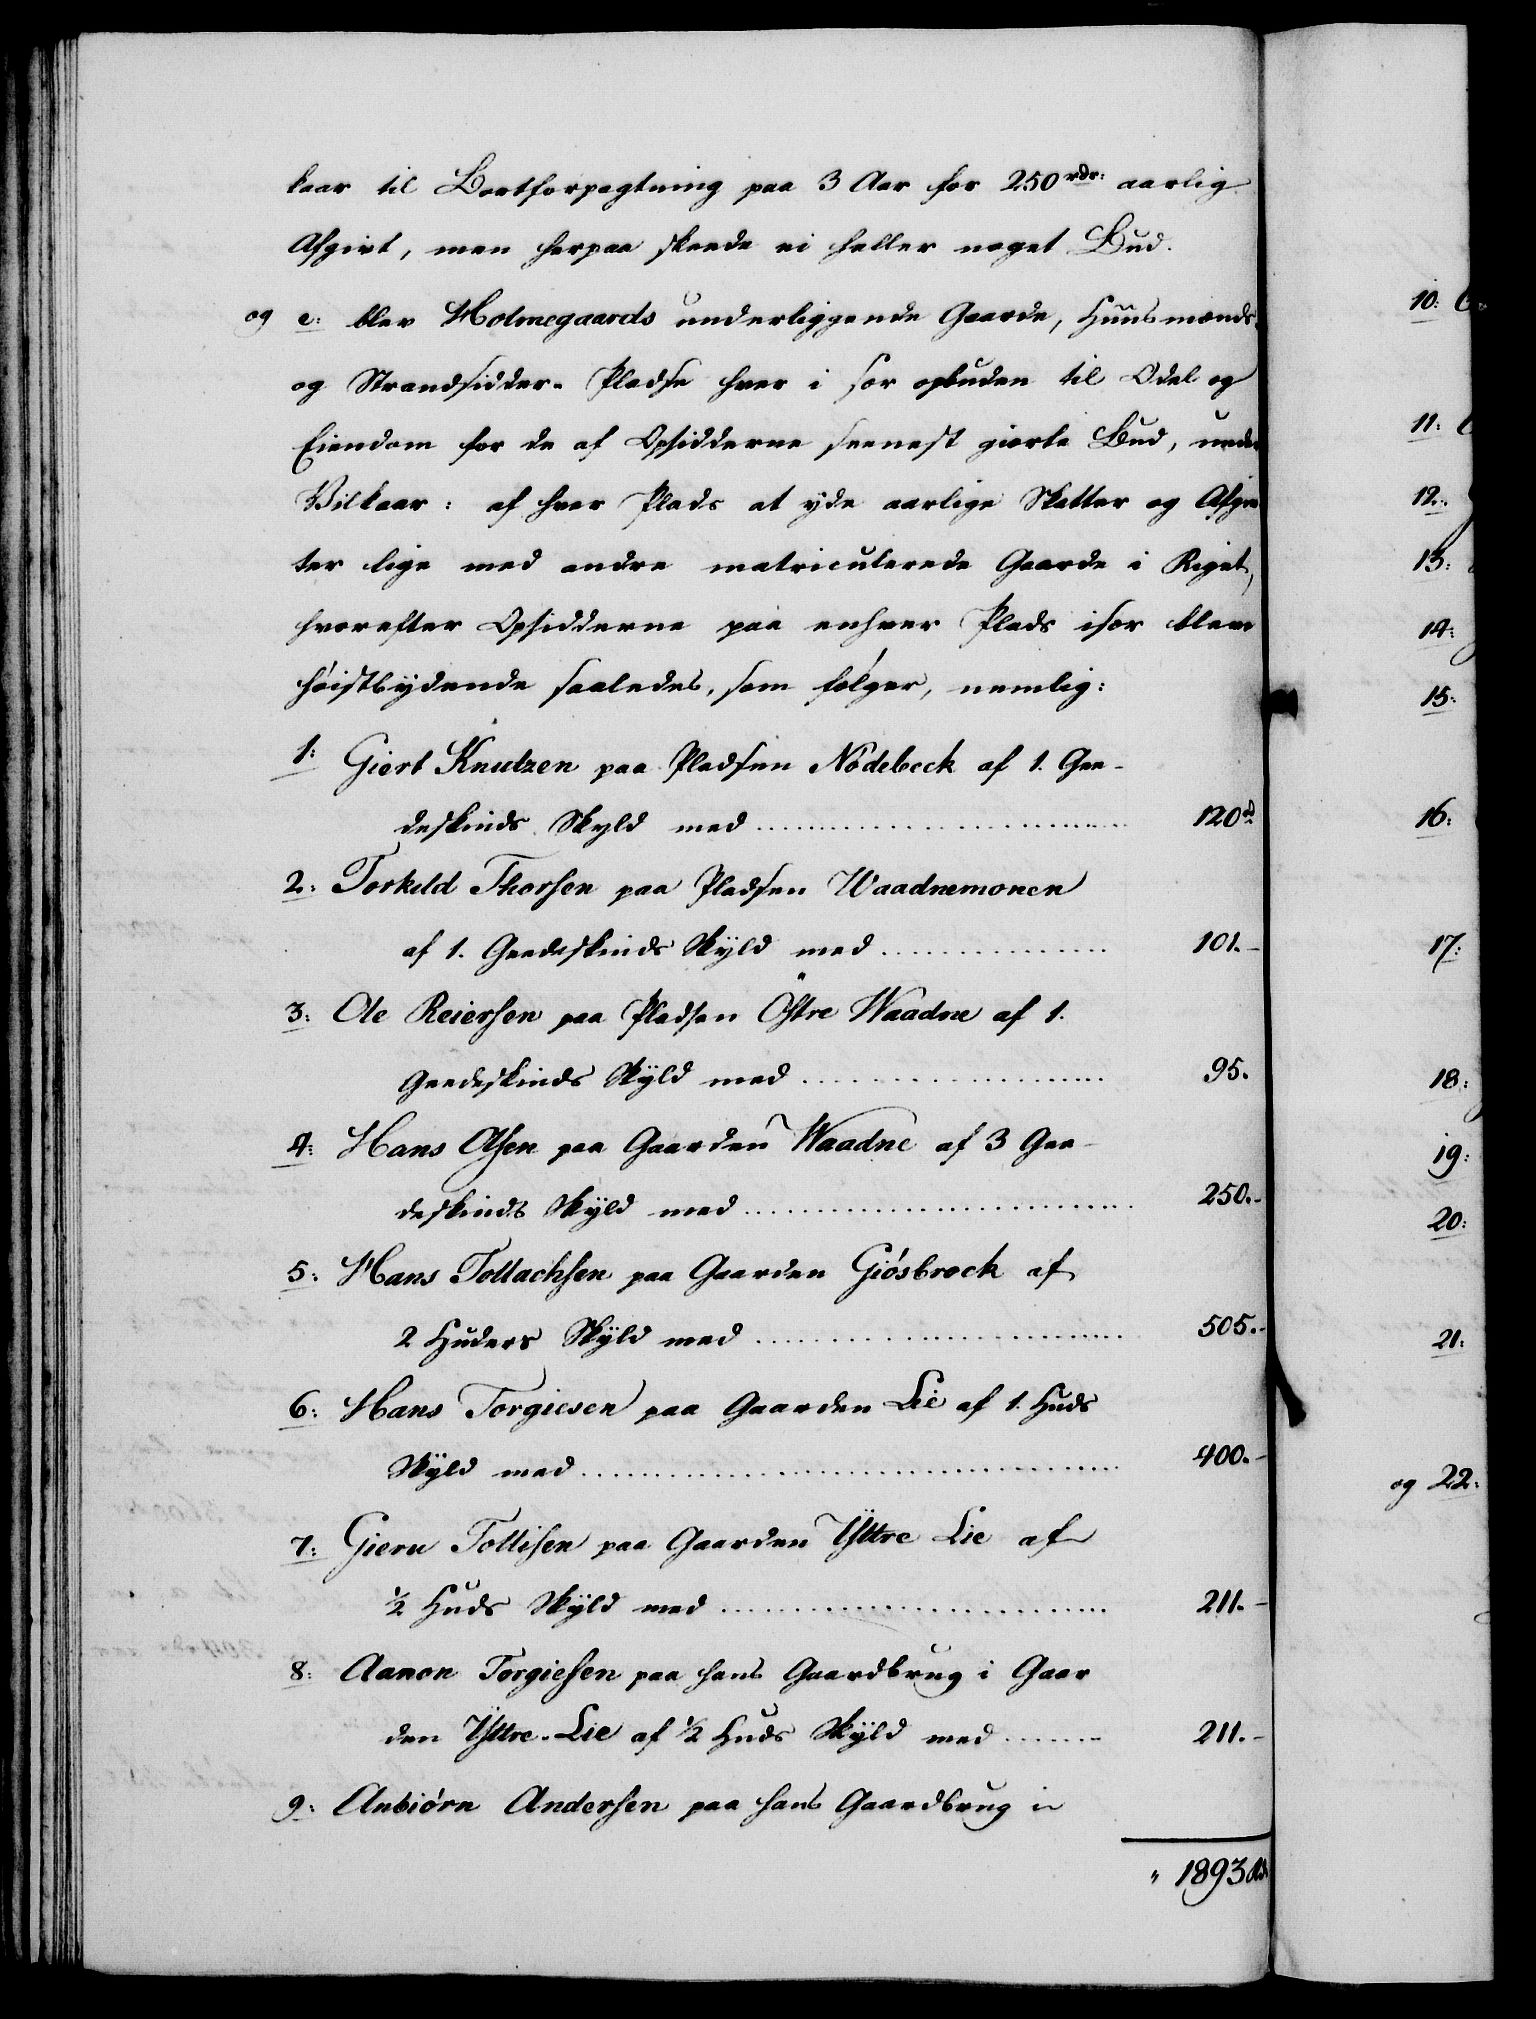 kaar til Bortforpagtning paa 3 Aar for 250 rdr: aarlig
Afgivt, men herpaa skeede ei heller noget Bud.
og e: blev Holmegaards underliggende Gaarde, Huusmænds
og Strandsidder-Pladse hver i sær opbuden til Odel og
Eiendom for de af Opsidderne seenest giorte Bud, under
Vilkaar: af hver Plads at yde aarlige Skatter og Afgiv
ter lige med andre matriculerede Gaarde i Riget,
hvorefter Opsidderne paa enhver Plads især bleve
høistbydende saaledes, som følger, nemlig:
1: Giert Knutzen paa Pladsen Nödebeck af 1. Gee-
deskinds Skyld med 120 rd
2: Torkild Thorsen paa Pladsen Waadnemonen
af 1. Geedeskinds Skyld med 101.-
3: Ole Reiersen paa Pladsen Östre Waadne af 1.
Geedeskinds Skyld med 95.
4: Hans Olsen paa Gaarden Waadne af 3 Gee-
deskinds Skyld med 250.-
5: Hans Tollachsen paa Gaarden Giøsbrock af
2 Huders Skyld med 505.-
6: Hans Torgiesen paa Gaarden Lie af 1. Huds
Skyld med 400.-
7: Gieru Tollisen paa Gaarden Ÿttre Lie af
1/2 Huds Skyld med 211.-
8: Aanon Torgiesen paa hans Gaardbrug i Gaar
den Ÿttre-Lie af 1/2 Huds Skyld med 211.-
9: Anbiørn Andersen paa hans Gaardbrug i
" 1893 rd
10:
11:
12:
13:
14:
15:
16:
17:
18:
19:
20:
21:
og 22: